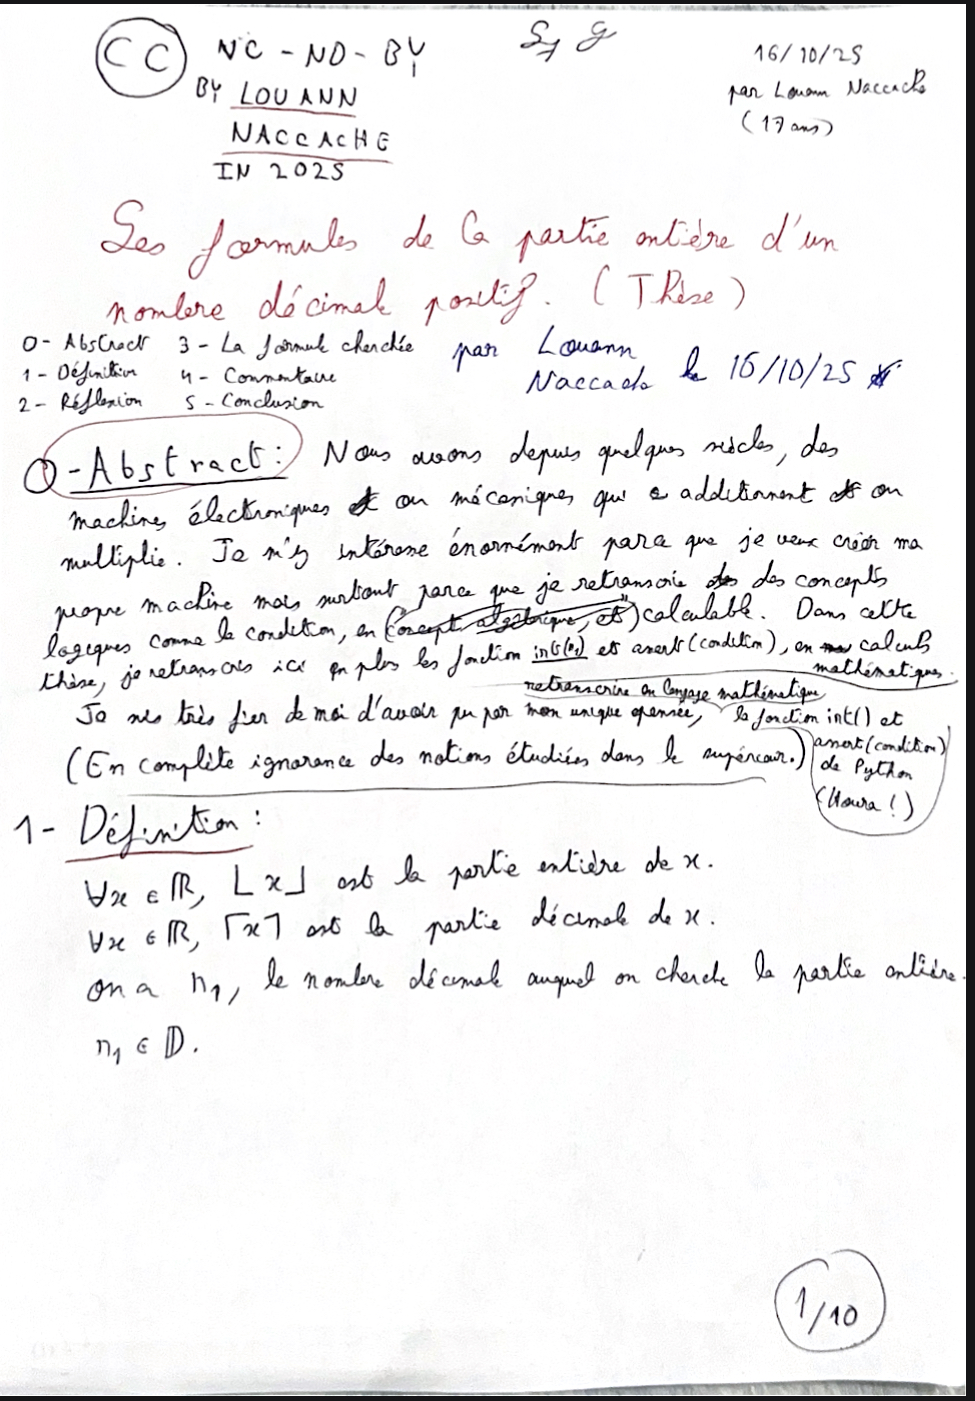 CC NC - ND - BY
BY LOUANN
NACCACHE
IN 2025
16/10/25
par Louann Naccache
(17 ans)
Les formules de la partie entière d'un
nombre décimal positif. (Thèse)
0- Abstract 3 - La formule cherchée
1 - Définition 4 - Commentaire
2 - Réflexion 5 - Conclusion
par Louann
Naccache le 16/10/25
0-Abstract: Nous avons depuis quelques siècles, des
machines électroniques et ou mécaniques qui additionnent et ou
multiplie. Je m'y intéresse énormément parce que je veux créer ma
propre machine mais surtout parce que je retranscrie des concepts
logiques comme la condition, en (concept algébrique, et) calculable. Dans cette
thèse, je retranscris ici en plus les fonction int(n₁) et assert(condition), en calculs
mathématiques.
retranscrire en langage mathématique
Je suis très fier de moi d'avoir pu par mon unique pensée, la fonction int() et
assert(condition)
de Python
(Houra !)
(En complète ignorance des notions étudiées dans le supérieur.)
1- Définition :
∀x ∈ ℝ, ⌊x⌋ est la partie entière de x.
∀x ∈ ℝ, ⌈x⌉ est la partie décimale de x.
on a n₁, le nombre décimale auquel on cherche la partie entière.
n₁ ∈ 𝔻.
1/10